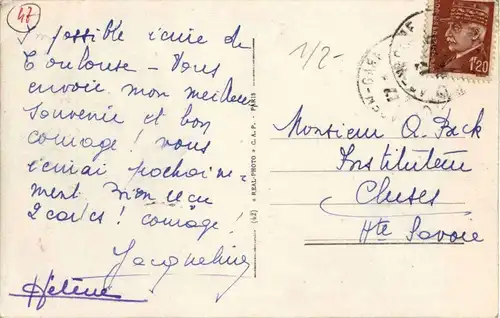 47
Impossible écrire de
Toulouse - Vous
envoie mon meilleur
souvenir et bon
courage ! vous
écrirai prochaine-
ment. Bien reçu
2 cartes ! courage !
Jacqueline
Hélène
1/2-
(43) * REAL-PHOTO * C.A.P. - PARIS
AGEN-GARE
1F20
Monsieur A. Back
Instituteur
Cluses
Hte Savoie